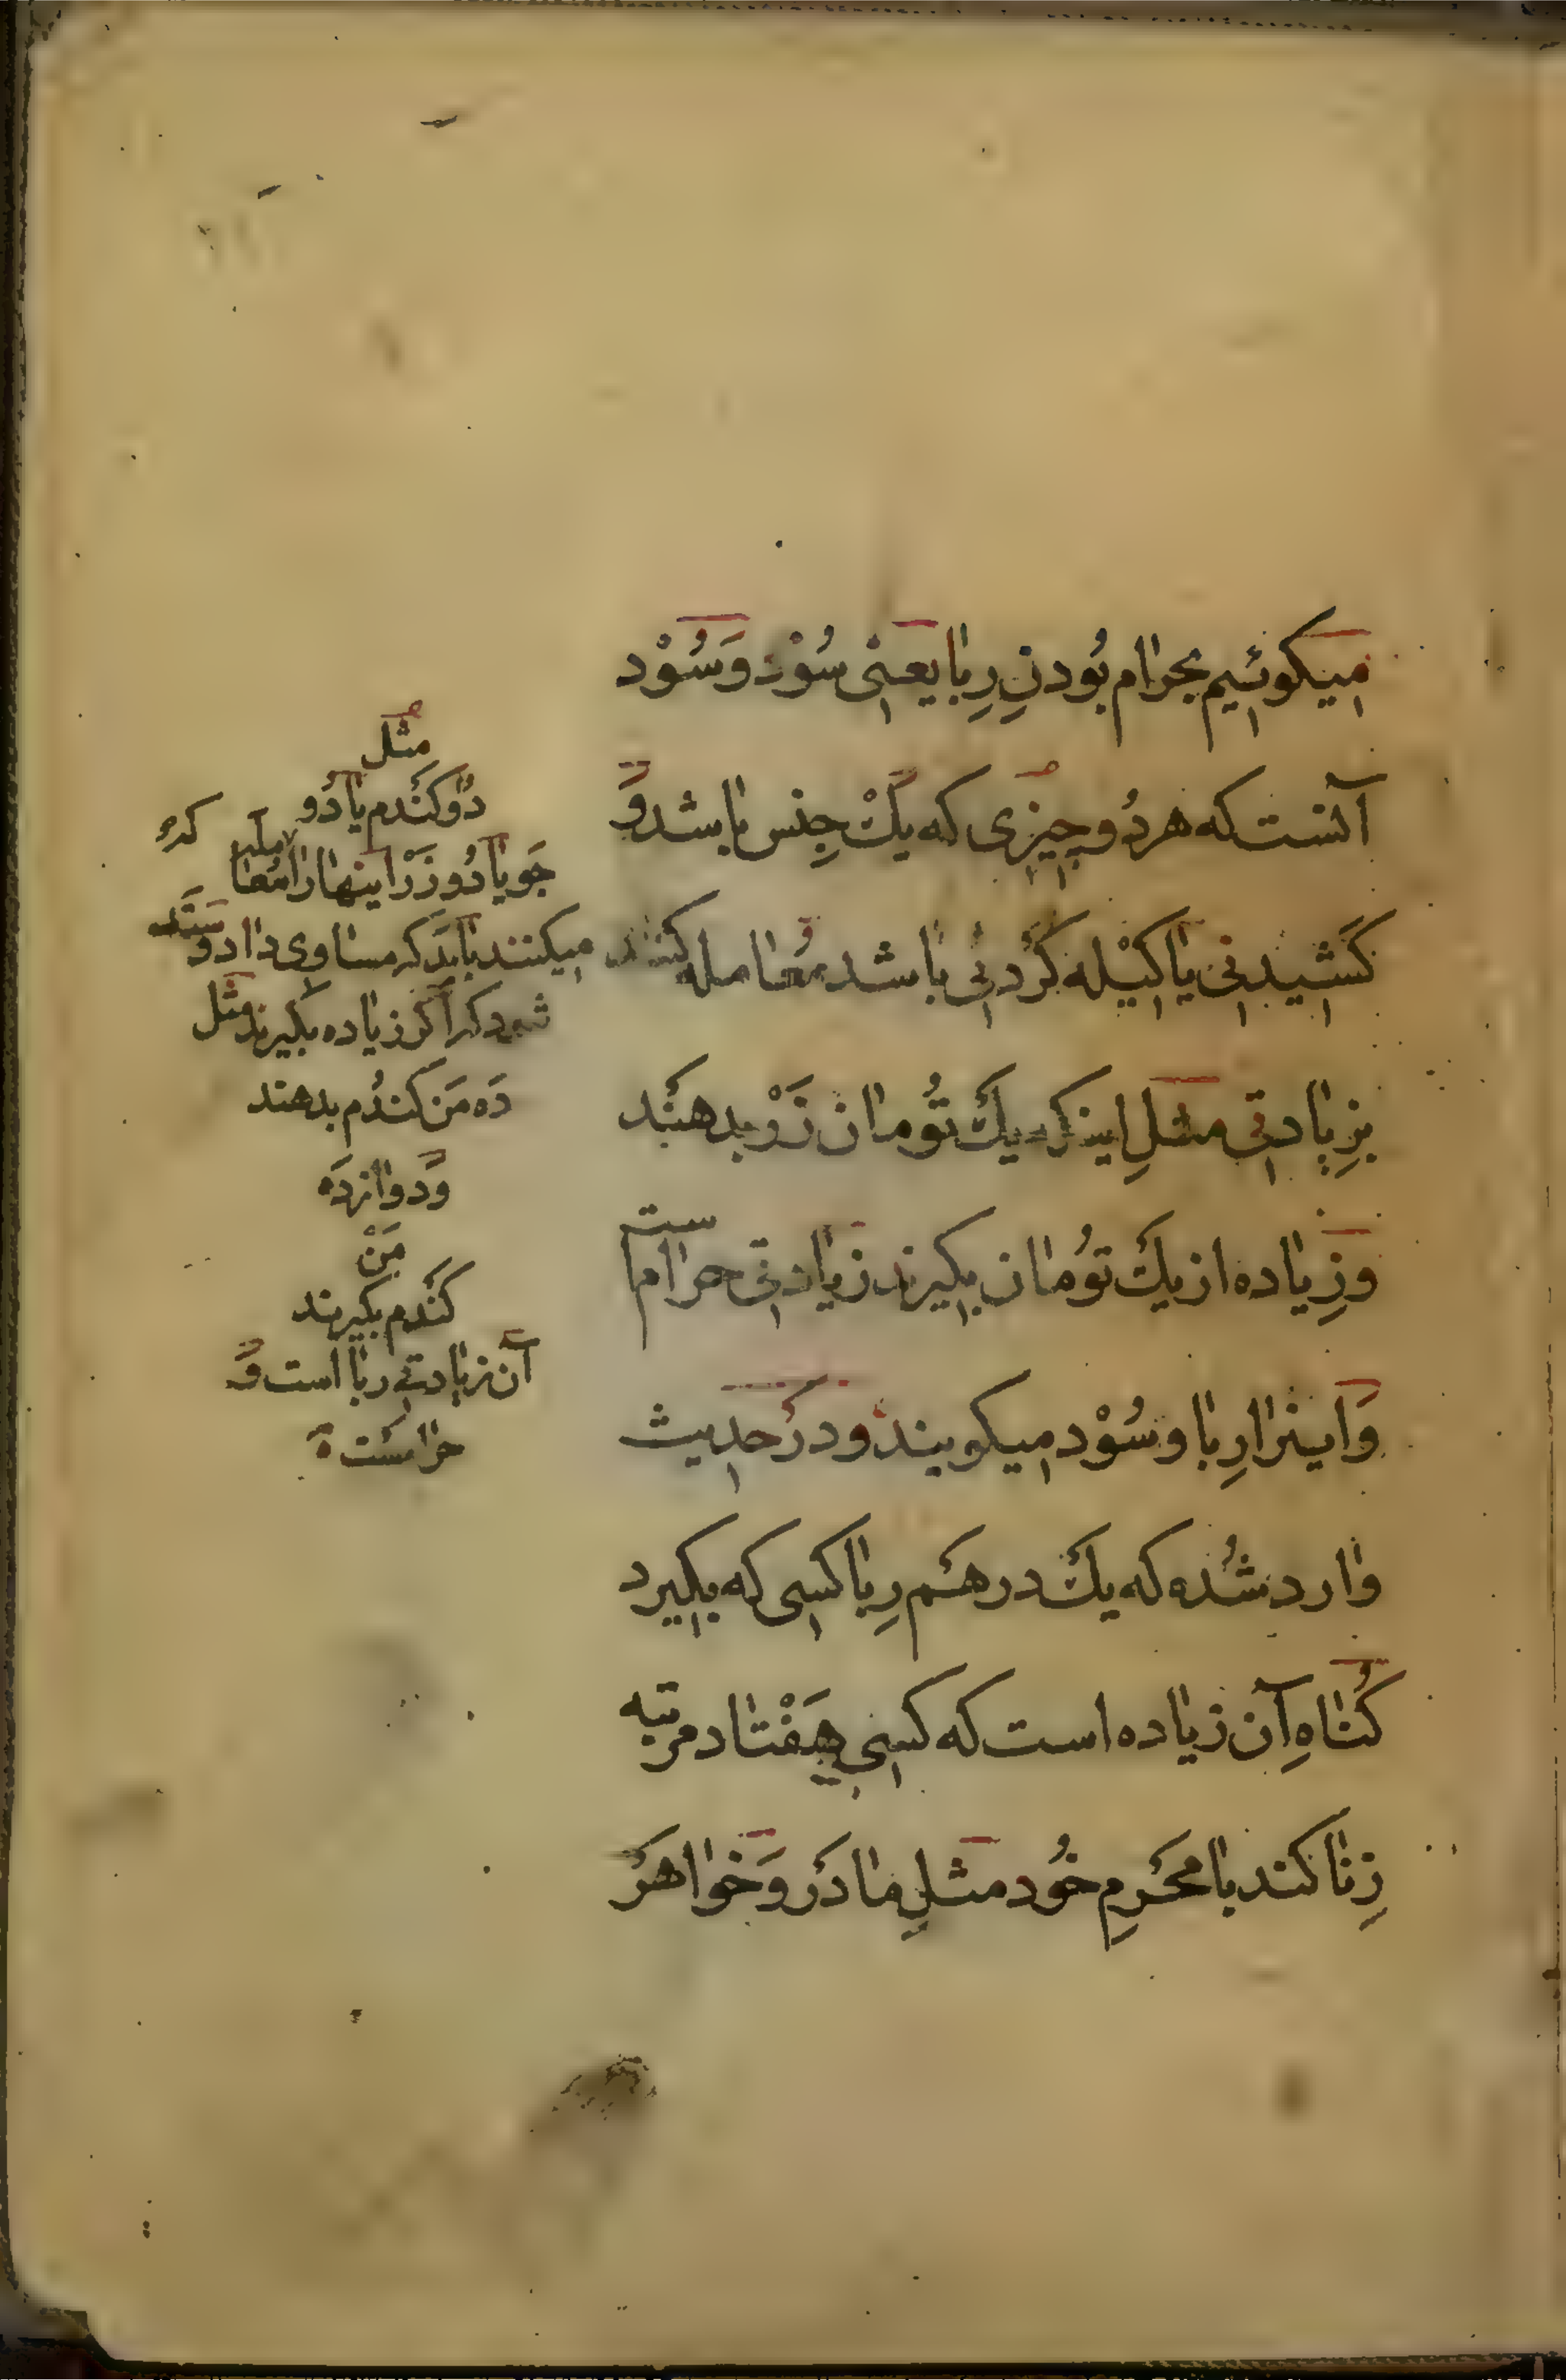 میکوئیم بحرام بُودنِ رِبا یعنی سُوْد وَ سُوْد
آنست که هر دُو چیزی که یَكْ جِنس باشد وَ
کَشیدنی یا کَیْله کَرْدنی باشد مُعامله کنند
بزِیادتی مثلِ اینکه یكْ تُومان زَرْ بدهنْد
وزِیاده از یكْ تُومان بکیرند زیادتی حرام ست
وَ اینرا رِبا و سُوْد میکویند و درْ حدیث
وارد شُده که یكْ درهَم رِبا کسی که بکیرد
کُناهِ آن زیاده است که کسی هَفْتاد مرتبه
زِنا کند با محْرمِ خُود مثلِ مادَر وَ خواهَرْ
مثل
دُو کندم یا دُو
جَو یا دُو زَرْ اینها را مُعا مله که
میکنند باید که مساوی داد و سَتَد
شود که اکر زیاده بکیرند مثل
دَه مَن کندُم بدهند
وَ دوازدَه
مَنْ
کَندم بکیرند
آن زیادتی ربا است وَ
حرامست